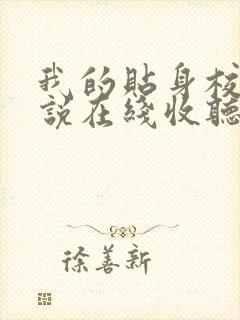 我的貼身校
說在綫收聽
徐善新